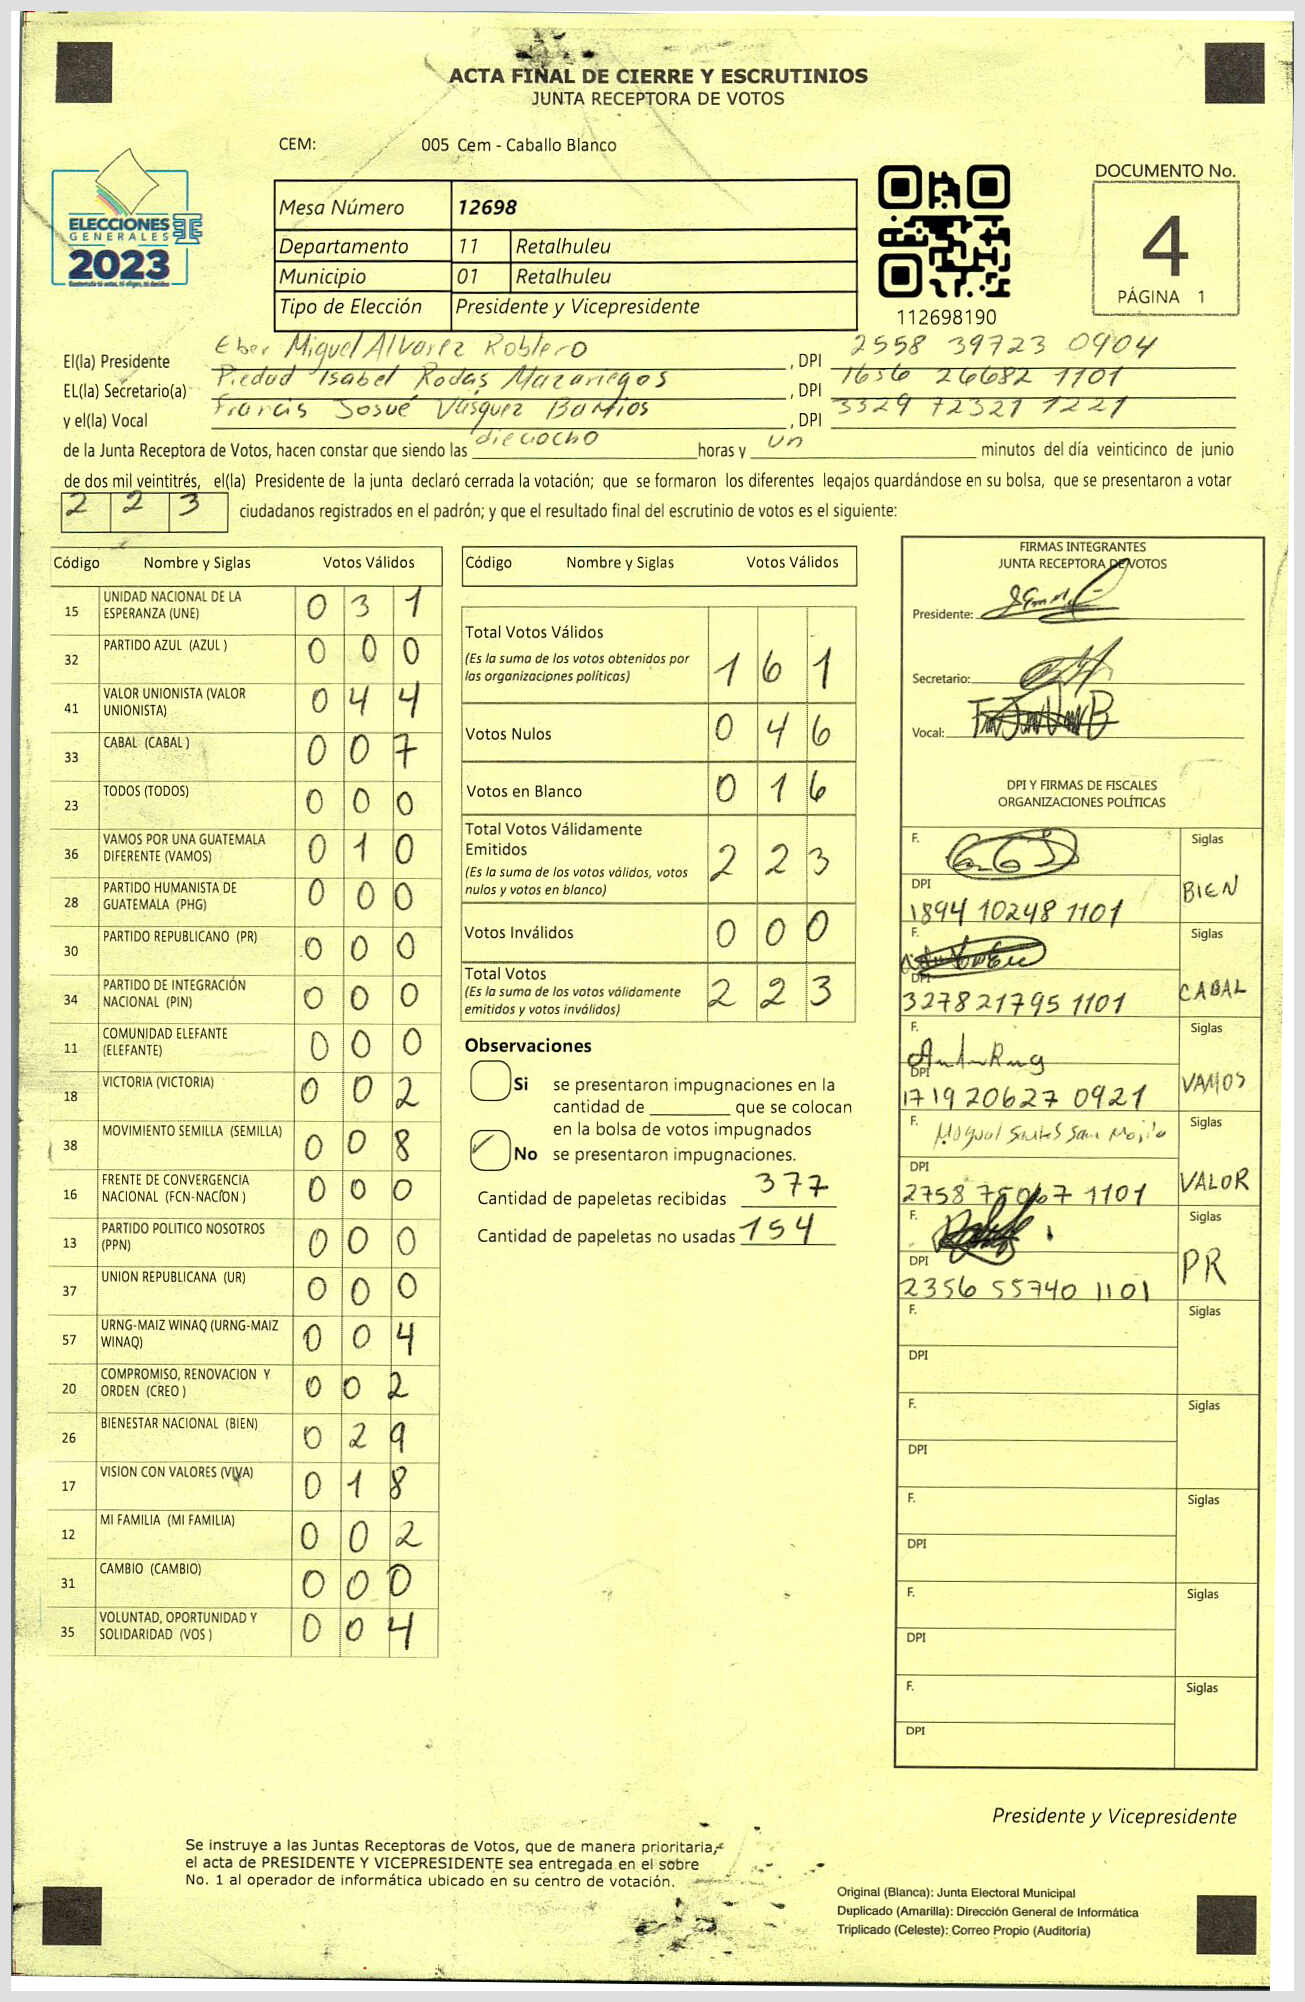 ACTA FINAL DE CIERRE Y ESCRUTINIOS
JUNTA RECEPTORA DE VOTOS
CEM: 005 Cem - Caballo Blanco
ELECCIONES
GENERALES
2023
Mesa Número 12698
Departamento 11 Retalhuleu
Municipio 01 Retalhuleu
Tipo de Elección Presidente y Vicepresidente
112698190
DOCUMENTO No.
4
PÁGINA 1
El(la) Presidente Eber Miguel Alvarez Roblero , DPI 2558 39723 0904
EL(la) Secretario(a) Piedad Isabel Rodas Mazariegos , DPI 1656 26682 1101
y el(la) Vocal Francis Josué Vásquez Barrios , DPI 3329 72321 1221
de la Junta Receptora de Votos, hacen constar que siendo las dieciocho horas y un minutos del día veinticinco de junio
de dos mil veintitrés, el(la) Presidente de la junta declaró cerrada la votación; que se formaron los diferentes legajos guardándose en su bolsa, que se presentaron a votar
2 2 3 ciudadanos registrados en el padrón; y que el resultado final del escrutinio de votos es el siguiente:
Código Nombre y Siglas Votos Válidos
15 UNIDAD NACIONAL DE LA ESPERANZA (UNE) 0 3 1
32 PARTIDO AZUL (AZUL ) 0 0 0
41 VALOR UNIONISTA (VALOR UNIONISTA) 0 4 4
33 CABAL (CABAL ) 0 0 7
23 TODOS (TODOS) 0 0 0
36 VAMOS POR UNA GUATEMALA DIFERENTE (VAMOS) 0 1 0
28 PARTIDO HUMANISTA DE GUATEMALA (PHG) 0 0 0
30 PARTIDO REPUBLICANO (PR) 0 0 0
34 PARTIDO DE INTEGRACIÓN NACIONAL (PIN) 0 0 0
11 COMUNIDAD ELEFANTE (ELEFANTE) 0 0 0
18 VICTORIA (VICTORIA) 0 0 2
38 MOVIMIENTO SEMILLA (SEMILLA) 0 0 8
16 FRENTE DE CONVERGENCIA NACIONAL (FCN-NACÍON ) 0 0 0
13 PARTIDO POLITICO NOSOTROS (PPN) 0 0 0
37 UNION REPUBLICANA (UR) 0 0 0
57 URNG-MAIZ WINAQ (URNG-MAIZ WINAQ) 0 0 4
20 COMPROMISO, RENOVACION Y ORDEN (CREO ) 0 0 2
26 BIENESTAR NACIONAL (BIEN) 0 2 9
17 VISION CON VALORES (VIVA) 0 1 8
12 MI FAMILIA (MI FAMILIA) 0 0 2
31 CAMBIO (CAMBIO) 0 0 0
35 VOLUNTAD, OPORTUNIDAD Y SOLIDARIDAD (VOS ) 0 0 4
Código Nombre y Siglas Votos Válidos
Total Votos Válidos 1 6 1
(Es la suma de los votos obtenidos por
las organizaciones políticas)
Votos Nulos 0 4 6
Votos en Blanco 0 1 6
Total Votos Válidamente
Emitidos 2 2 3
(Es la suma de los votos válidos, votos
nulos y votos en blanco)
Votos Inválidos 0 0 0
Total Votos 2 2 3
(Es la suma de los votos válidamente
emitidos y votos inválidos)
Observaciones
Si se presentaron impugnaciones en la
cantidad de ________ que se colocan
en la bolsa de votos impugnados
No se presentaron impugnaciones.
Cantidad de papeletas recibidas 377
Cantidad de papeletas no usadas 154
FIRMAS INTEGRANTES
JUNTA RECEPTORA DE VOTOS
Presidente:
Secretario:
Vocal:
DPI Y FIRMAS DE FISCALES
ORGANIZACIONES POLÍTICAS
F. Siglas
DPI BIEN
1894 10248 1101
F. Siglas
DPI CABAL
3278 21795 1101
F. Siglas
DPI VAMOS
1719 20627 0921
F. Siglas
DPI VALOR
2758 75067 1101
F. Siglas
DPI PR
2356 55740 1101
F. Siglas
DPI
F. Siglas
DPI
F. Siglas
DPI
F. Siglas
DPI
F. Siglas
DPI
Presidente y Vicepresidente
Se instruye a las Juntas Receptoras de Votos, que de manera prioritaria,
el acta de PRESIDENTE Y VICEPRESIDENTE sea entregada en el sobre
No. 1 al operador de informática ubicado en su centro de votación.
Original (Blanca): Junta Electoral Municipal
Duplicado (Amarilla): Dirección General de Informática
Triplicado (Celeste): Correo Propio (Auditoría)